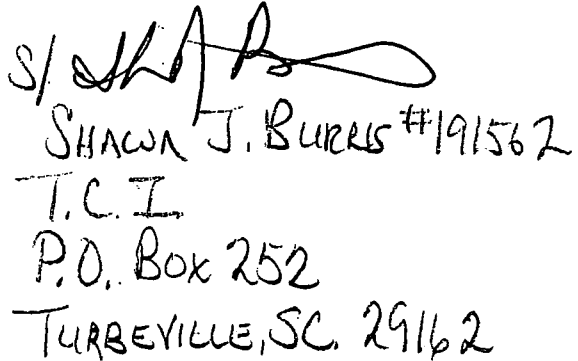 S/
SHAWN J. BURRIS #191562
T.C.I.
P.O. BOX 252
TURBEVILLE, SC. 29162